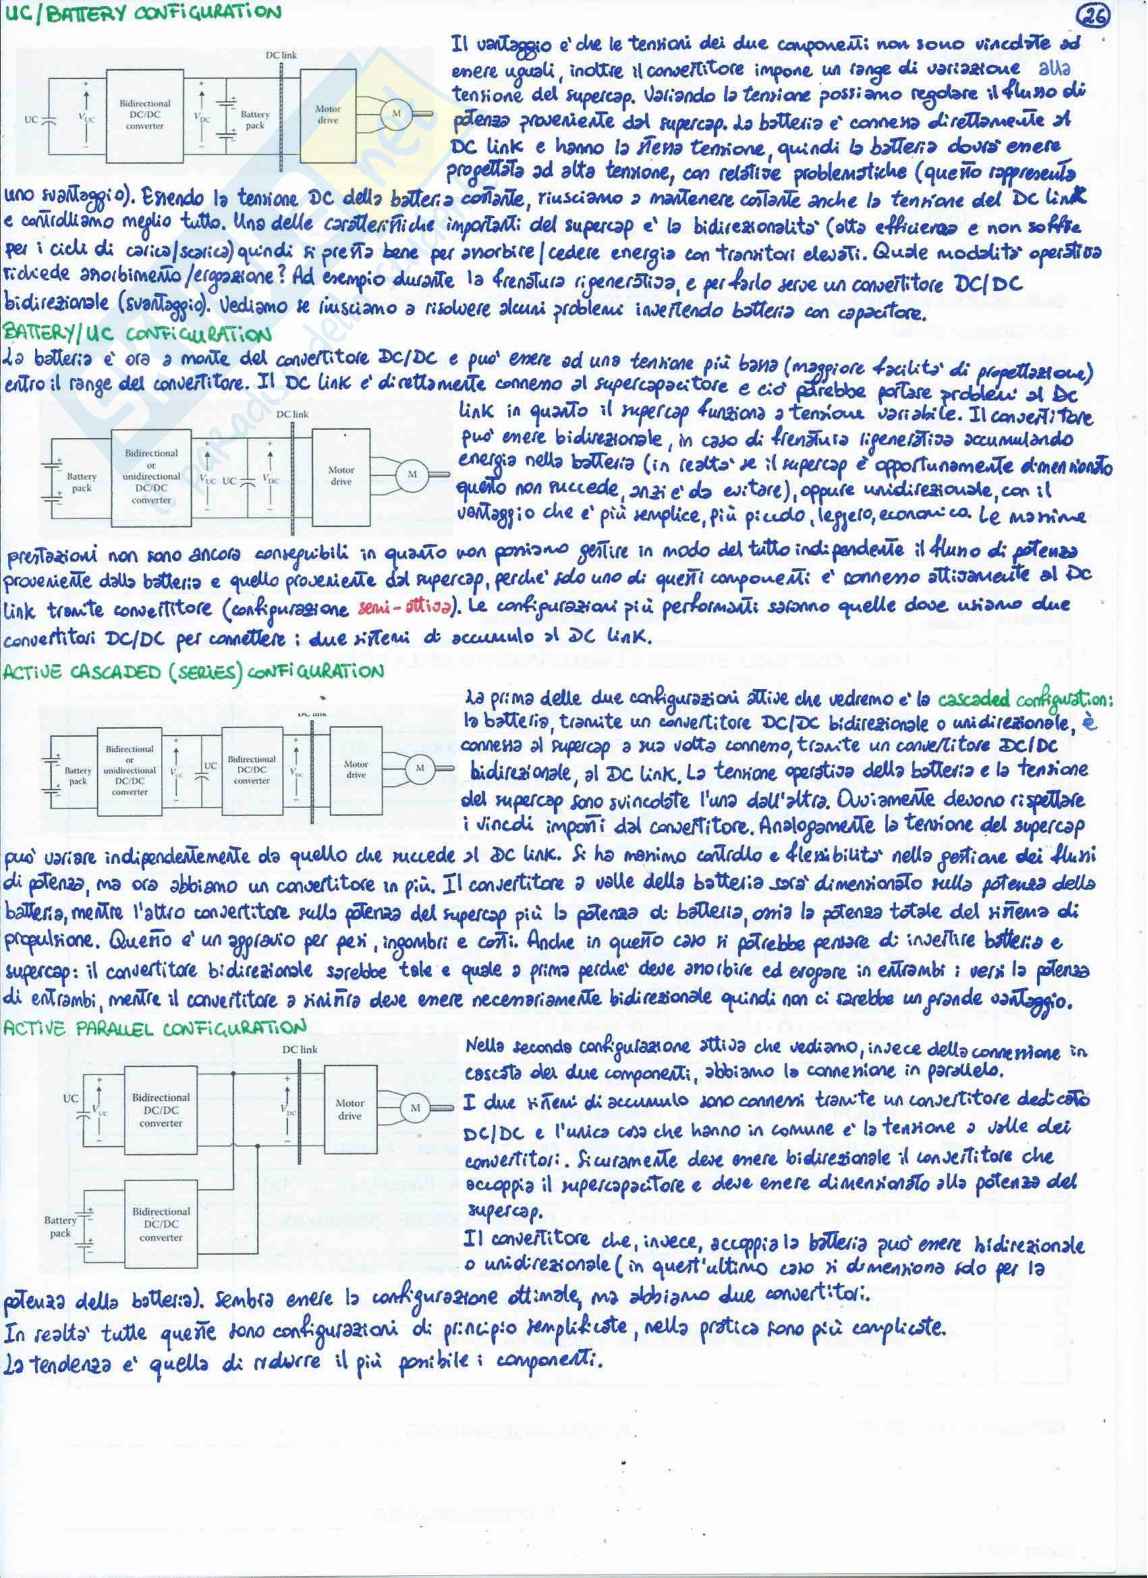 UC/BATTERY CONFIGURATION
26
Il vantaggio è che le tensioni dei due componenti non sono vincolate ad
essere uguali, inoltre il convertitore impone un range di variazione alla
tensione del supercap. Variando la tensione possiamo regolare il flusso di
potenza proveniente dal supercap. La batteria è connessa direttamente al
DC link e hanno la stessa tensione, quindi la batteria dovrà essere
progettata ad alta tensione, con relative problematiche (questo rappresenta
DC link
UC
V_UC
Bidirectional
DC/DC
converter
V_DC
Battery
pack
Motor
drive
M
uno svantaggio). Essendo la tensione DC della batteria costante, riusciamo a mantenere costante anche la tensione del DC link
e controlliamo meglio tutto. Una delle caratteristiche importanti del supercap è la bidirezionalità (alta efficienza e non soffre
per i cicli di carica/scarica) quindi si presta bene per assorbire/cedere energia con transitori elevati. Quale modalità operativa
richiede assorbimento/erogazione? Ad esempio durante la frenatura rigenerativa, e per farlo serve un convertitore DC/DC
bidirezionale (svantaggio). Vediamo se riusciamo a risolvere alcuni problemi invertendo batteria con capacitore.
BATTERY/UC CONFIGURATION
La batteria è ora a monte del convertitore DC/DC e può essere ad una tensione più bassa (maggiore facilità di progettazione)
entro il range del convertitore. Il DC link è direttamente connesso al supercapacitore e ciò potrebbe portare problemi al DC
link in quanto il supercap funziona a tensione variabile. Il convertitore
può essere bidirezionale, in caso di frenatura rigenerativa accumulando
energia nella batteria (in realtà se il supercap è opportunamente dimensionato
questo non succede, anzi è da evitare), oppure unidirezionale, con il
vantaggio che è più semplice, più piccolo, leggero, economico. Le massime
DC link
Battery
pack
Bidirectional
or
unidirectional
DC/DC
converter
V_UC
UC
V_DC
Motor
drive
M
prestazioni non sono ancora conseguibili in quanto non possiamo gestire in modo del tutto indipendente il flusso di potenza
proveniente dalla batteria e quello proveniente dal supercap, perchè solo uno di questi componenti è connesso attivamente al DC
link tramite convertitore (configurazione semi-attiva). Le configurazioni più performanti saranno quelle dove usiamo due
convertitori DC/DC per connettere i due sistemi di accumulo al DC link.
ACTIVE CASCADED (SERIES) CONFIGURATION
La prima delle due configurazioni attive che vedremo è la cascaded configuration:
la batteria, tramite un convertitore DC/DC bidirezionale o unidirezionale, è
connessa al supercap a sua volta connesso, tramite un convertitore DC/DC
bidirezionale, al DC link. La tensione operativa della batteria e la tensione
del supercap sono svincolate l'una dall'altra. Ovviamente devono rispettare
i vincoli imposti dal convertitore. Analogamente la tensione del supercap
DC link
Battery
pack
Bidirectional
or
unidirectional
DC/DC
converter
V_UC
UC
Bidirectional
DC/DC
converter
V_DC
Motor
drive
M
può variare indipendentemente da quello che succede al DC link. Si ha massimo controllo e flessibilità nella gestione dei flussi
di potenza, ma ora abbiamo un convertitore in più. Il convertitore a valle della batteria sarà dimensionato sulla potenza della
batteria, mentre l'altro convertitore sulla potenza del supercap più la potenza di batteria, ossia la potenza totale del sistema di
propulsione. Questo è un aggravio per pesi, ingombri e costi. Anche in questo caso si potrebbe pensare di invertire batteria e
supercap: il convertitore bidirezionale sarebbe tale e quale a prima perchè deve assorbire ed erogare in entrambi i versi la potenza
di entrambi, mentre il convertitore a sinistra deve essere necessariamente bidirezionale quindi non ci sarebbe un grande vantaggio.
ACTIVE PARALLEL CONFIGURATION
Nella seconda configurazione attiva che vediamo, invece della connessione in
cascata dei due componenti, abbiamo la connessione in parallelo.
I due sistemi di accumulo sono connessi tramite un convertitore dedicato
DC/DC e l'unica cosa che hanno in comune è la tensione a valle dei
convertitori. Sicuramente deve essere bidirezionale il convertitore che
accoppia il supercapacitore e deve essere dimensionato alla potenza del
supercap.
Il convertitore che, invece, accoppia la batteria può essere bidirezionale
o unidirezionale (in quest'ultimo caso si dimensiona solo per la
DC link
UC
V_UC
Bidirectional
DC/DC
converter
V_DC
Motor
drive
M
Battery
pack
Bidirectional
DC/DC
converter
potenza della batteria). Sembra essere la configurazione ottimale, ma abbiamo due convertitori.
In realtà tutte queste sono configurazioni di principio semplificate, nella pratica sono più complicate.
La tendenza è quella di ridurre il più possibile i componenti.